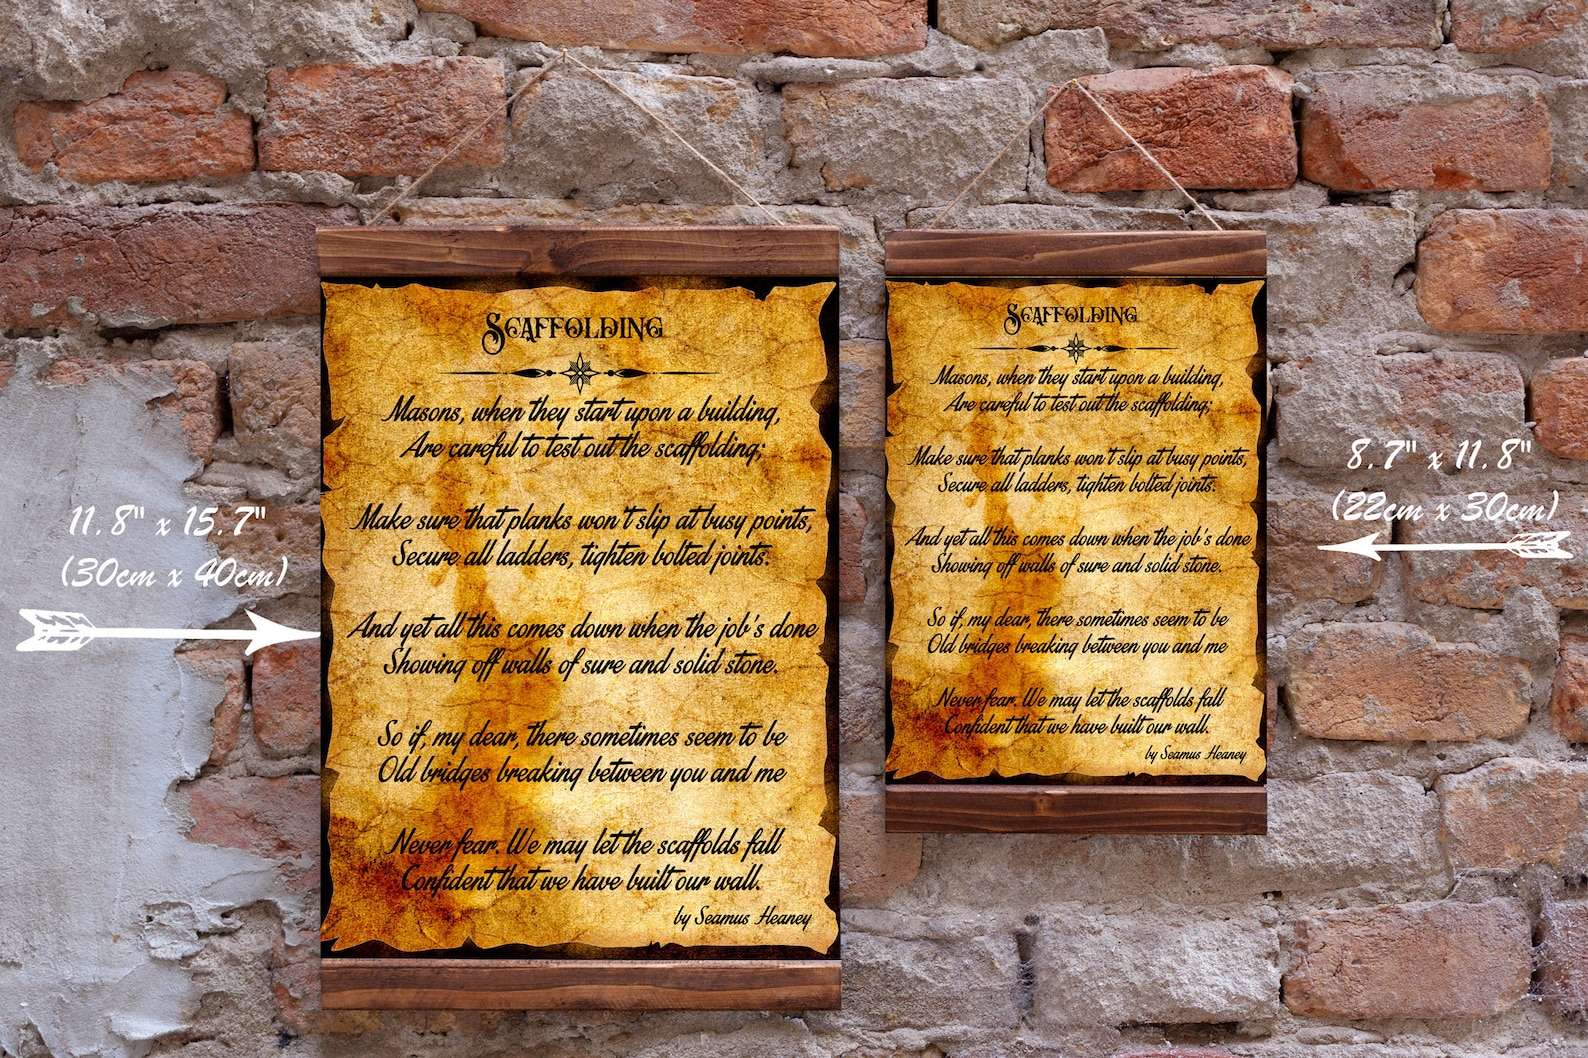 11.8" x 15.7"
(30cm x 40cm)
Scaffolding
Masons, when they start upon a building,
Are careful to test out the scaffolding;
Make sure that planks won't slip at busy points,
Secure all ladders, tighten bolted joints.
And yet all this comes down when the job's done
Showing off walls of sure and solid stone.
So if, my dear, there sometimes seem to be
Old bridges breaking between you and me
Never fear. We may let the scaffolds fall
Confident that we have built our wall.
by Seamus Heaney
Scaffolding
Masons, when they start upon a building,
Are careful to test out the scaffolding;
Make sure that planks won't slip at busy points,
Secure all ladders, tighten bolted joints.
And yet all this comes down when the job's done
Showing off walls of sure and solid stone.
So if, my dear, there sometimes seem to be
Old bridges breaking between you and me
Never fear. We may let the scaffolds fall
Confident that we have built our wall.
by Seamus Heaney
8.7" x 11.8"
(22cm x 30cm)